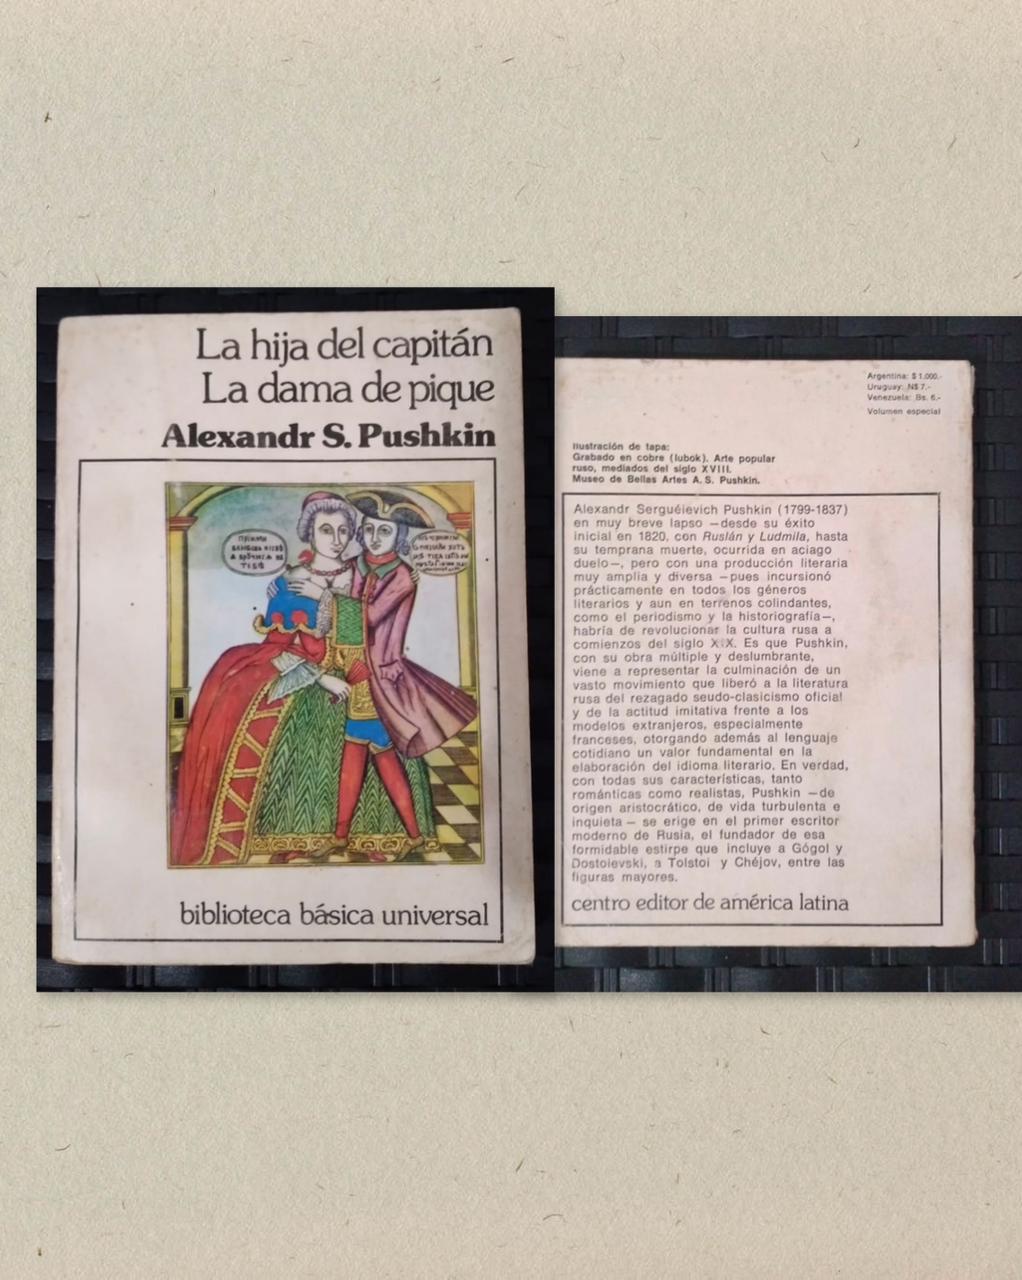 La hija del capitán
La dama de pique
Alexandr S. Pushkin
ПРIИМИ
ТЕБѢ
biblioteca básica universal
Argentina: $ 1.000.-
Uruguay: N$ 7.-
Venezuela: Bs. 6.-
Volumen especial
Ilustración de tapa:
Grabado en cobre (lubok). Arte popular
ruso, mediados del siglo XVIII.
Museo de Bellas Artes A. S. Pushkin.
Alexandr Serguéievich Pushkin (1799-1837)
en muy breve lapso —desde su éxito
inicial en 1820, con Ruslán y Ludmila, hasta
su temprana muerte, ocurrida en aciago
duelo—, pero con una producción literaria
muy amplia y diversa —pues incursionó
prácticamente en todos los géneros
literarios y aun en terrenos colindantes,
como el periodismo y la historiografía—,
habría de revolucionar la cultura rusa a
comienzos del siglo XIX. Es que Pushkin,
con su obra múltiple y deslumbrante,
viene a representar la culminación de un
vasto movimiento que liberó a la literatura
rusa del rezagado seudo-clasicismo oficial
y de la actitud imitativa frente a los
modelos extranjeros, especialmente
franceses, otorgando además al lenguaje
cotidiano un valor fundamental en la
elaboración del idioma literario. En verdad,
con todas sus características, tanto
románticas como realistas, Pushkin —de
origen aristocrático, de vida turbulenta e
inquieta— se erige en el primer escritor
moderno de Rusia, el fundador de esa
formidable estirpe que incluye a Gógol y
Dostoievski, a Tolstoi y Chéjov, entre las
figuras mayores.
centro editor de américa latina